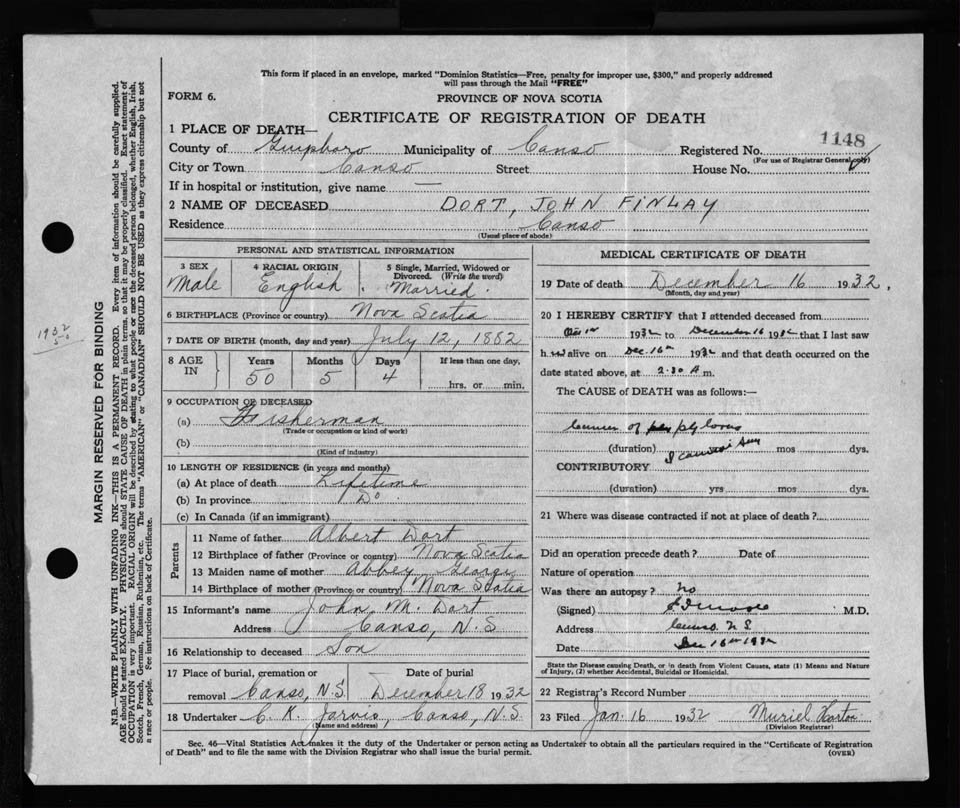 This form if placed in an envelope, marked "Dominion Statistics—Free, penalty for improper use, $300," and properly addressed
will pass through the Mail "FREE"
FORM 6.
PROVINCE OF NOVA SCOTIA
CERTIFICATE OF REGISTRATION OF DEATH
1148
1 PLACE OF DEATH—
County of Guysboro Municipality of Canso Registered No.
(For use of Registrar General only)
City or Town Canso Street House No.
If in hospital or institution, give name —
2 NAME OF DECEASED DORT, JOHN FINLAY
Residence Canso
(Usual place of abode)
PERSONAL AND STATISTICAL INFORMATION
3 SEX 4 RACIAL ORIGIN 5 Single, Married, Widowed or Divorced. (Write the word)
Male English Married.
6 BIRTHPLACE (Province or country) Nova Scotia
7 DATE OF BIRTH (month, day and year) July 12, 1882
8 AGE IN Years Months Days If less than one day,
50 5 4 hrs. or min.
9 OCCUPATION OF DECEASED
(a) Fisherman
(Trade or occupation or kind of work)
(b)
(Kind of industry)
10 LENGTH OF RESIDENCE (in years and months)
(a) At place of death Lifetime
(b) In province Do
(c) In Canada (if an immigrant)
Parents
11 Name of father Albert Dort
12 Birthplace of father (Province or country) Nova Scotia
13 Maiden name of mother Abbey George
14 Birthplace of mother (Province or country) Nova Scotia
15 Informant's name John M. Dort
Address Canso, N.S
16 Relationship to deceased Son
17 Place of burial, cremation or removal Canso, N.S. Date of burial December 18 1932
18 Undertaker C. K. Jarvis, Canso, N.S.
(Name and address)
MEDICAL CERTIFICATE OF DEATH
19 Date of death December 16 1932.
(Month, day and year)
20 I HEREBY CERTIFY that I attended deceased from
1932 to December 16 1932 that I last saw
h alive on Dec. 16th 1932 and that death occurred on the
date stated above, at 2.30 A m.
The CAUSE OF DEATH was as follows:—
Cancer of pylorus
(duration) mos dys.
CONTRIBUTORY
(duration) yrs mos dys.
21 Where was disease contracted if not at place of death?
Did an operation precede death? Date of
Nature of operation
Was there an autopsy? no
(Signed) M.D.
Address Canso N S
Date Dec 16th 1932
State the Disease causing Death, or in death from Violent Causes, state (1) Means and Nature
of Injury, (2) whether Accidental, Suicidal or Homicidal.
22 Registrar's Record Number
23 Filed Jan. 16 1932 Muriel
(Division Registrar)
Sec. 46—Vital Statistics Act makes it the duty of the Undertaker or person acting as Undertaker to obtain all the particulars required in the "Certificate of Registration
of Death" and to file the same with the Division Registrar who shall issue the burial permit.
(OVER)
MARGIN RESERVED FOR BINDING
N.B.—WRITE PLAINLY WITH UNFADING INK—THIS IS A PERMANENT RECORD. Every item of information should be carefully supplied.
AGE should be stated EXACTLY. PHYSICIANS should STATE CAUSE OF DEATH in plain terms, so that it may be properly classified. Exact statement of
OCCUPATION is very important. RACIAL ORIGIN will be described by stating to what people or race the deceased person belonged, whether English, Irish,
Scotch, French, German, Russian, Ruthenian, etc. The terms "AMERICAN" or "CANADIAN" SHOULD NOT BE USED as they express citizenship but not
a race or people. See instructions on back of Certificate.
1932
50